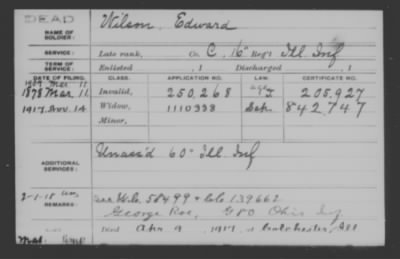 DEAD
NAME OF SOLDIER: Wilson, Edward
SERVICE: Late rank, Co. C, 16" Reg't Ill. Inf
TERM OF SERVICE: Enlisted , 1 Discharged , 1
DATE OF FILING. CLASS. APPLICATION NO. LAW. CERTIFICATE NO.
1878 Mar 11 Invalid, 250,268 205,927
1917. Nov. 14 Widow, 1110338 842,747
Minor,
ADDITIONAL SERVICES: Unass'd 60" Ill. Inf
REMARKS: 58499 + 139662
George Roe, G 80 Ohio Inf
Died Apr. 9, 1917, at Colchester, Ill